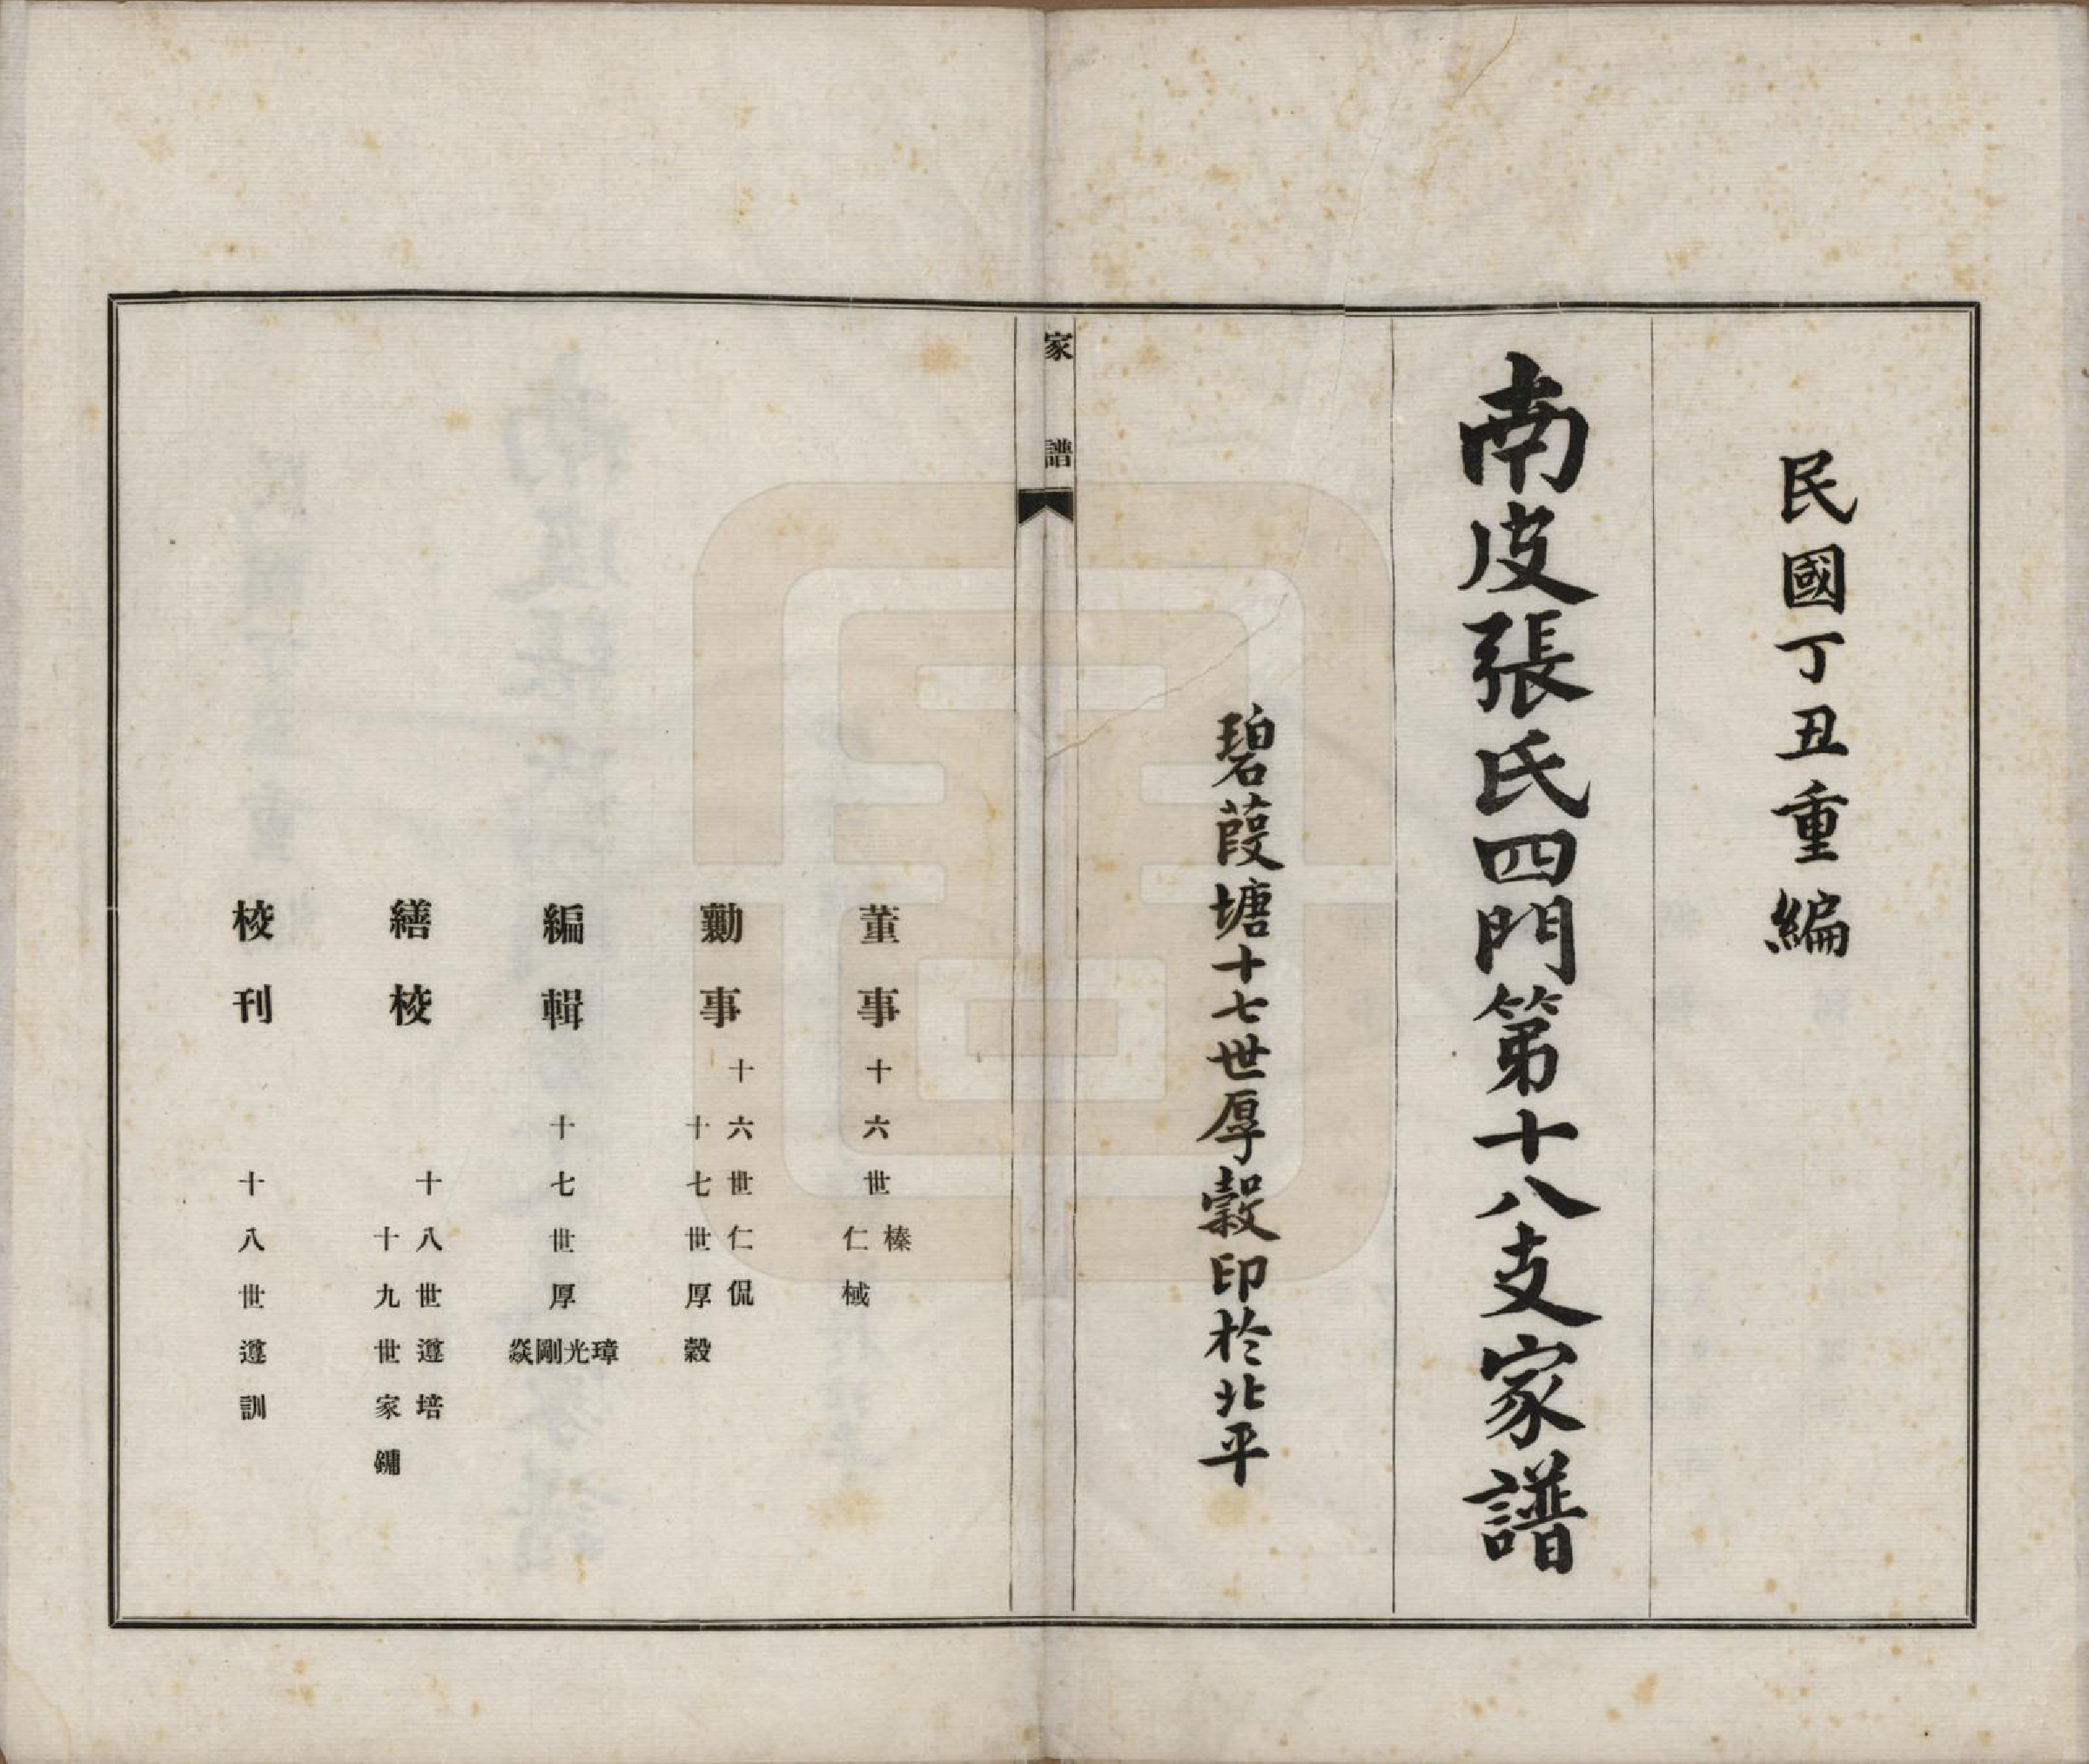 民國丁丑重編
南皮張氏四門第十八支家譜
碧葭塘十七世厚毅印於北平
家譜
董事 十六世 榛
仁棫
勷事 十六世仁侃
十七世厚毅
編輯 十七世厚 璋光剛焱
繕校 十八世遵培
十九世家鏞
校刊 十八世遵訓